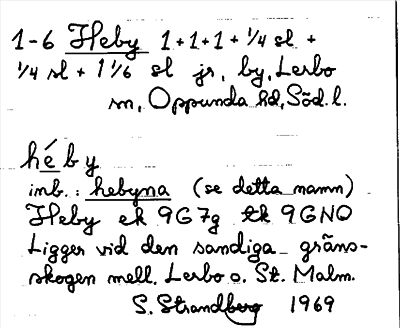 1-6 Heby 1+1+1+¼ sl +
¼ sl + 1 ⅙ sl jr, by, Lerbo
sn, Oppunda hd, Söd. l.
héby
inb.: hebyna (se detta namn)
Heby ek 9G7g tk 9GNO
Ligger vid den sandiga gräns-
skogen mell. Lerbo o. St. Malm.
S. Strandberg 1969